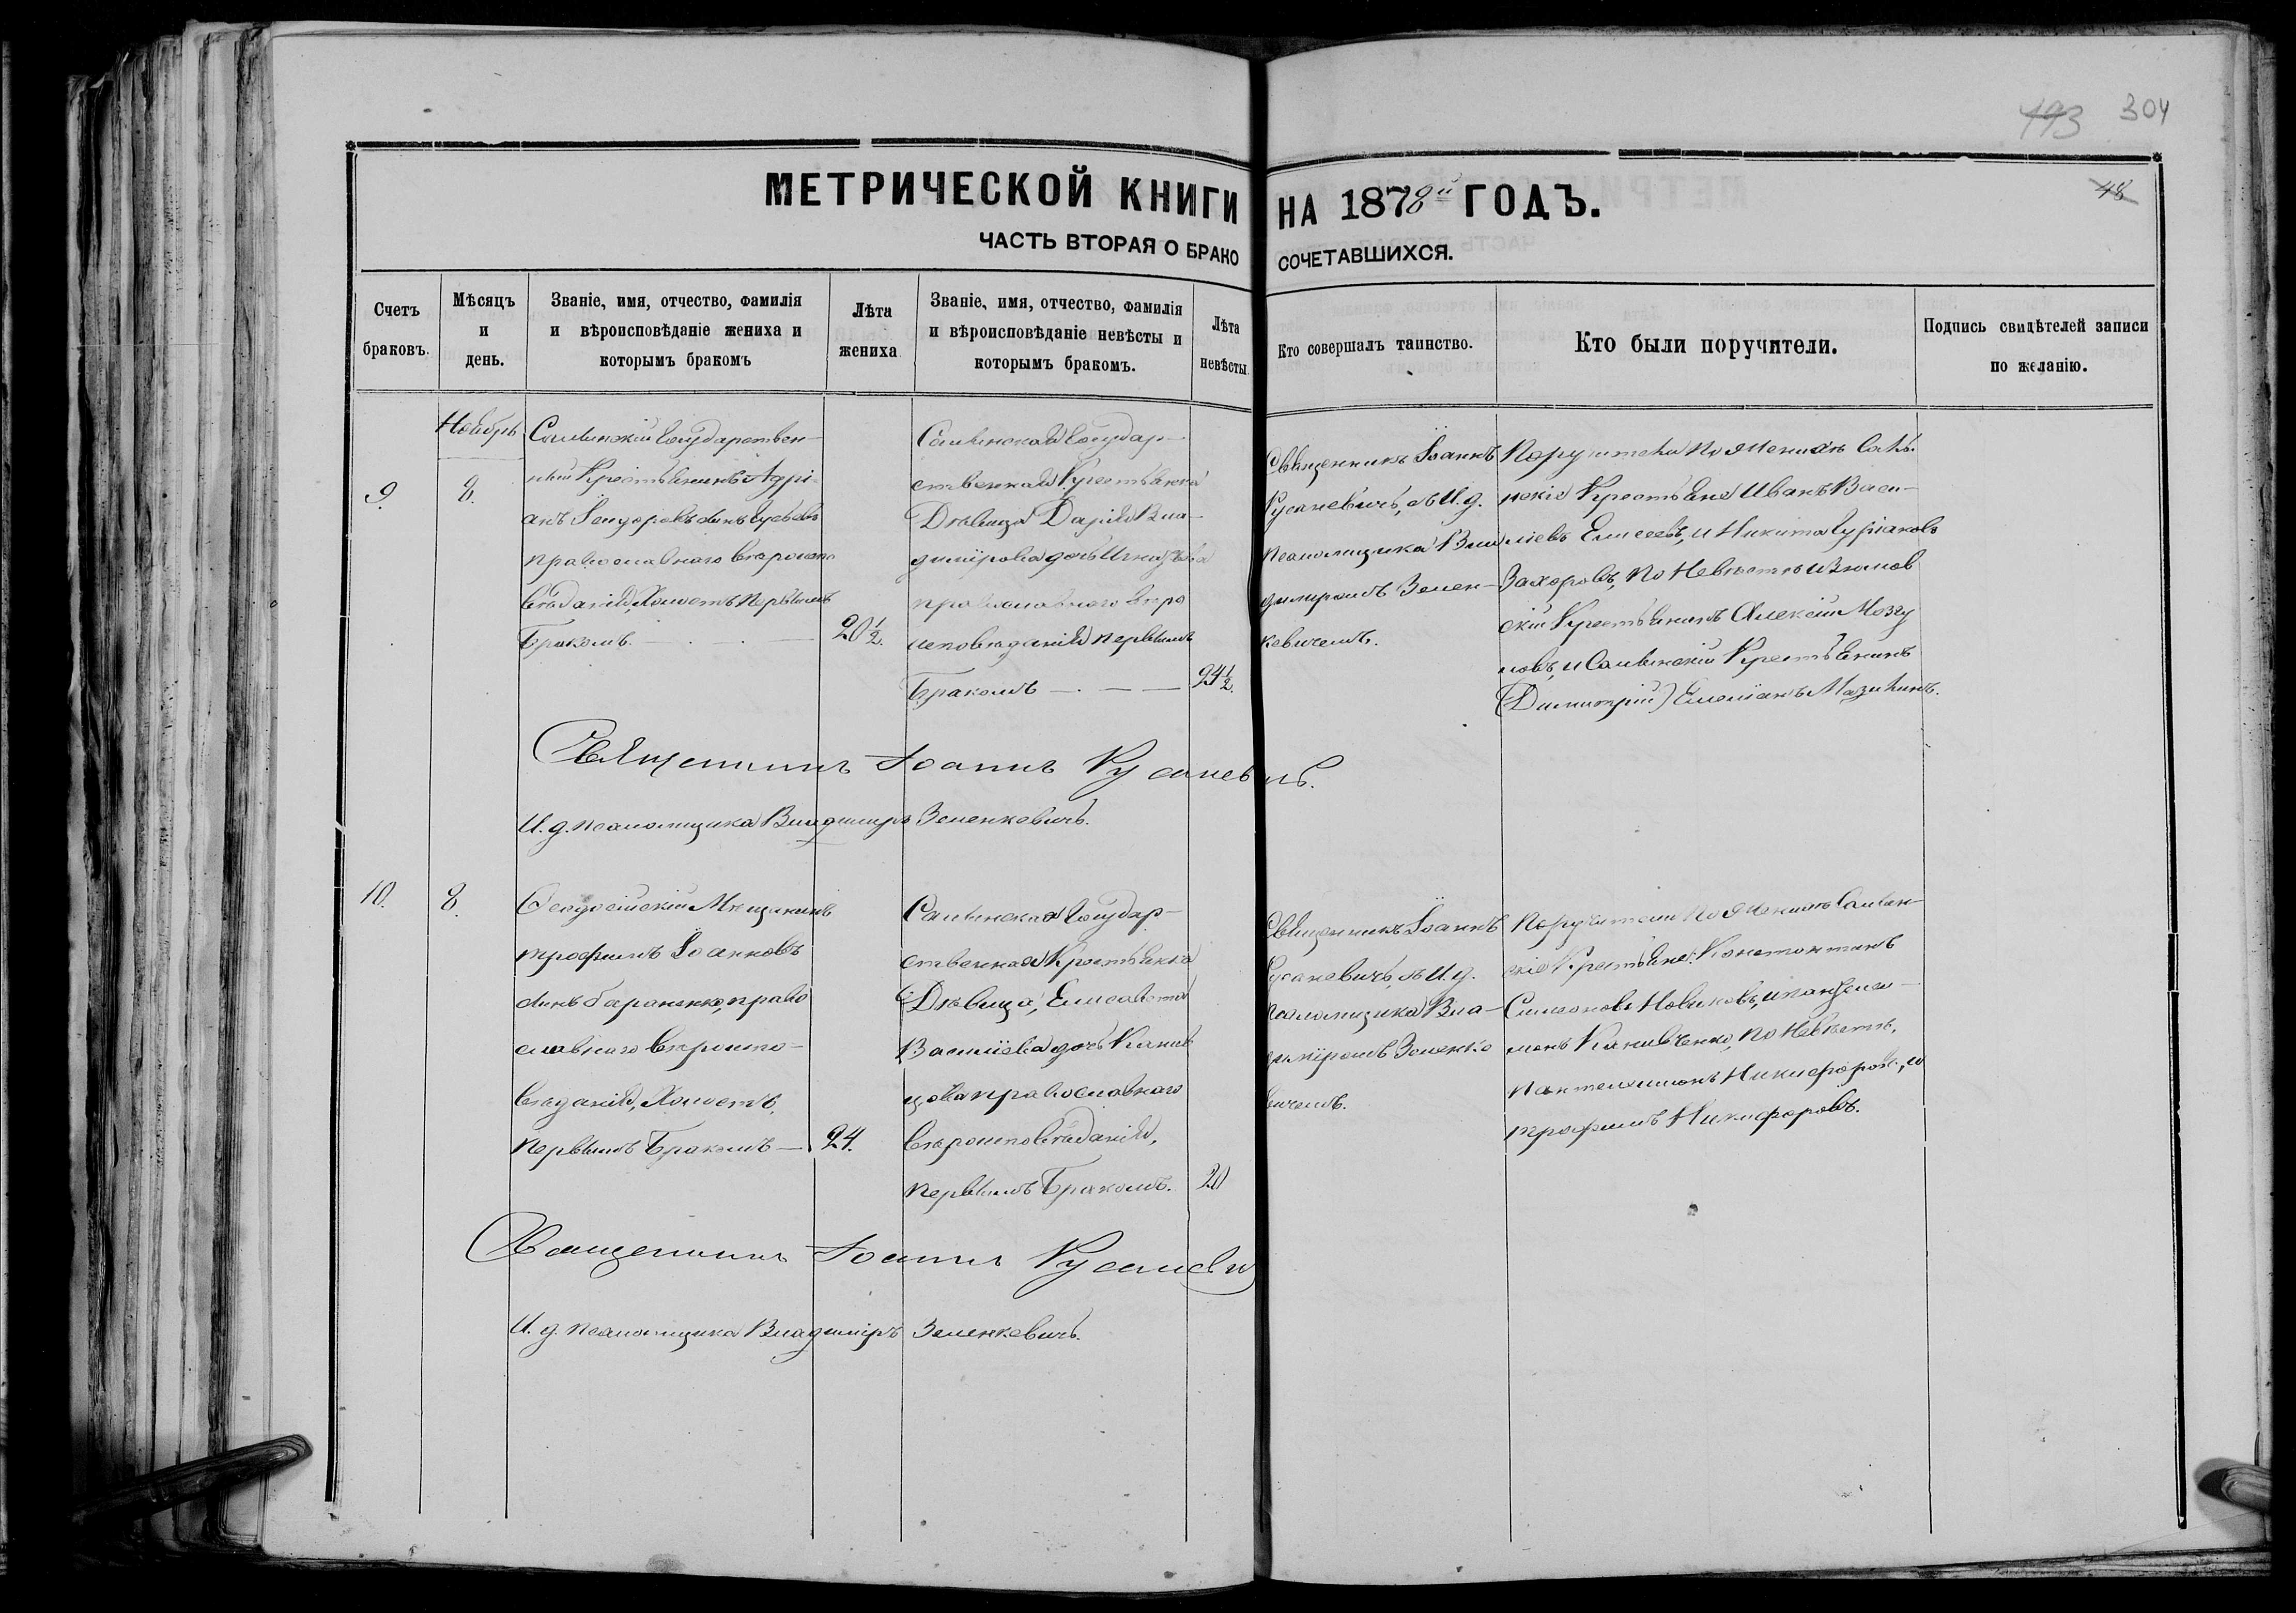 193 304
48
МЕТРИЧЕСКОЙ КНИГИ НА 1878й ГОДЪ.
ЧАСТЬ ВТОРАЯ О БРАКОСОЧЕТАВШИХСЯ.
Счетъ
браковъ.
Мѣсяцъ
и
день.
Званіе, имя, отчество, фамилія
и вѣроисповѣданіе жениха и
которымъ бракомъ
Лѣта
жениха
Званіе, имя, отчество, фамилія
и вѣроисповѣданіе невѣсты и
которымъ бракомъ.
Лѣта
невѣсты
Кто совершалъ таинство.
Кто были поручители.
Подпись свидѣтелей записи
по желанію.
9.
Ноябрь
8.
Салынскій Государствен-
ный Крестьянинъ Адрі-
анъ сынъ
православнаго вѣроиспо
вѣданія, Холостъ, первымъ
Бракомъ.
20 1/2.
Салынская Государ-
ственная Крестьянка
Дѣвица Дарія Вла-
димірова дочь
православнаго вѣро
исповѣданія первымъ
Бракомъ
24 1/2.
Священникъ Іоаннъ
Русаневичъ, съ И. д.
псаломщика Вла
диміромъ Зелен-
кевичемъ.
Поручители по женихѣ Салы-
нскіе Крестьяне Иванъ Васи-
ліевъ Елисеевъ, и Никита
Захаровъ, по Невѣстѣ Изюмов
скій Крестьянинъ Алексій Мозгу
новъ, и Салынскій Крестьянинъ
(Димитрій) Емеліанъ Мазикинъ.
Священникъ Іоаннъ Русаневичъ.
И. д. псаломщика Владиміръ Зеленкевичъ.
10.
8.
Феодосійскій Мѣщанинъ
Трофимъ Іоанновъ
сынъ Бараненко, право
славнаго вѣроиспо-
вѣданія, Холостъ,
первымъ Бракомъ
24.
Салынская Государ-
ственная Крестьянка
Дѣвица, Елисавета
Василіева дочь Канив
цова православнаго
вѣроисповѣданія,
первымъ Бракомъ.
20
Священникъ Іоаннъ
Русаневичъ, съ И. д.
псаломщика Вла-
диміромъ Зеленке
вичемъ.
Поручители по женихѣ Салын-
скіе Крестьяне: Константинъ
Симеоновъ Новиковъ, и Пантелеи-
монъ Канивченко, по Невѣстѣ,
Пантелеимонъ Никифоровъ, и
Трофимъ Никифоровъ.
Священникъ Іоаннъ Русаневич
И. д. псаломщика Владиміръ Зеленкевичъ.